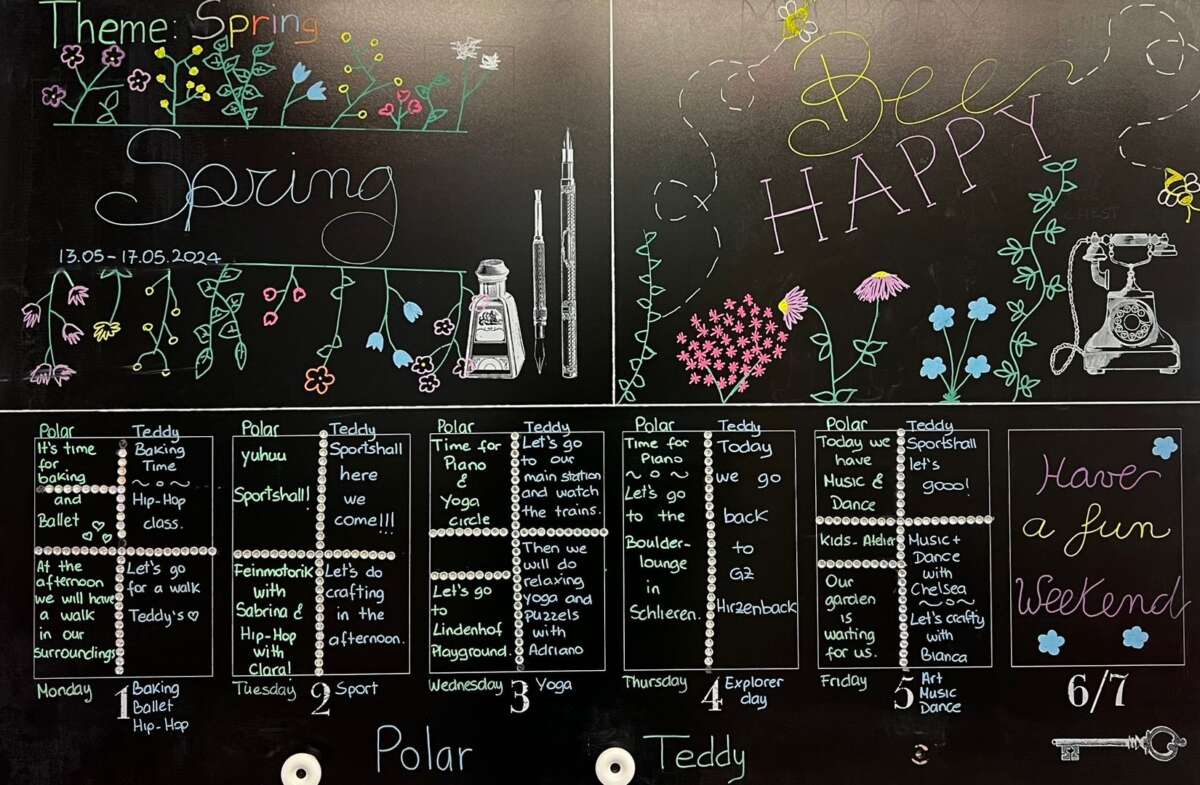 Theme: Spring
Spring
13.05 – 17.05.2024
Bee
HAPPY
Polar
It's time
for
baking
and
Ballet
At the
afternoon
we will have
a walk
in our
surroundings
Teddy
Baking
Time
~o~
Hip-Hop
class.
Let's go
for a walk
Teddy's ♡
Monday
1
Baking
Ballet
Hip-Hop
Polar
yuhuu
Sportshall!
Feinmotorik
with
Sabrina &
Hip-Hop
with
Clara!
Teddy
Sportshall
here
we
come!!!
Let's do
crafting
in the
afternoon.
Tuesday
2
Sport
Polar
Time for
Piano
&
Yoga
circle
Let's go
to
Lindenhof
Playground.
Teddy
Let's go
to our
main station
and watch
the trains.
Then we
will do
relaxing
yoga and
puzzels
with
Adriano
Wednesday
3
Yoga
Polar
Time for
Piano
~o~
Let's go
to the
Boulder-
lounge
in
Schlieren.
Teddy
Today
we go
back
to
GZ
Hirzenback
Thursday
4
Explorer
day
Polar
Today we
have
Music &
Dance
Kids-Atelier
Our
garden
is
waiting
for us.
Teddy
Sportshall
let's
gooo!
Music +
Dance
with
Chelsea
~o~
Let's crafty
with
Bianca
Friday
5
Art
Music
Dance
Have
a fun
Weekend
6/7
Polar
Teddy